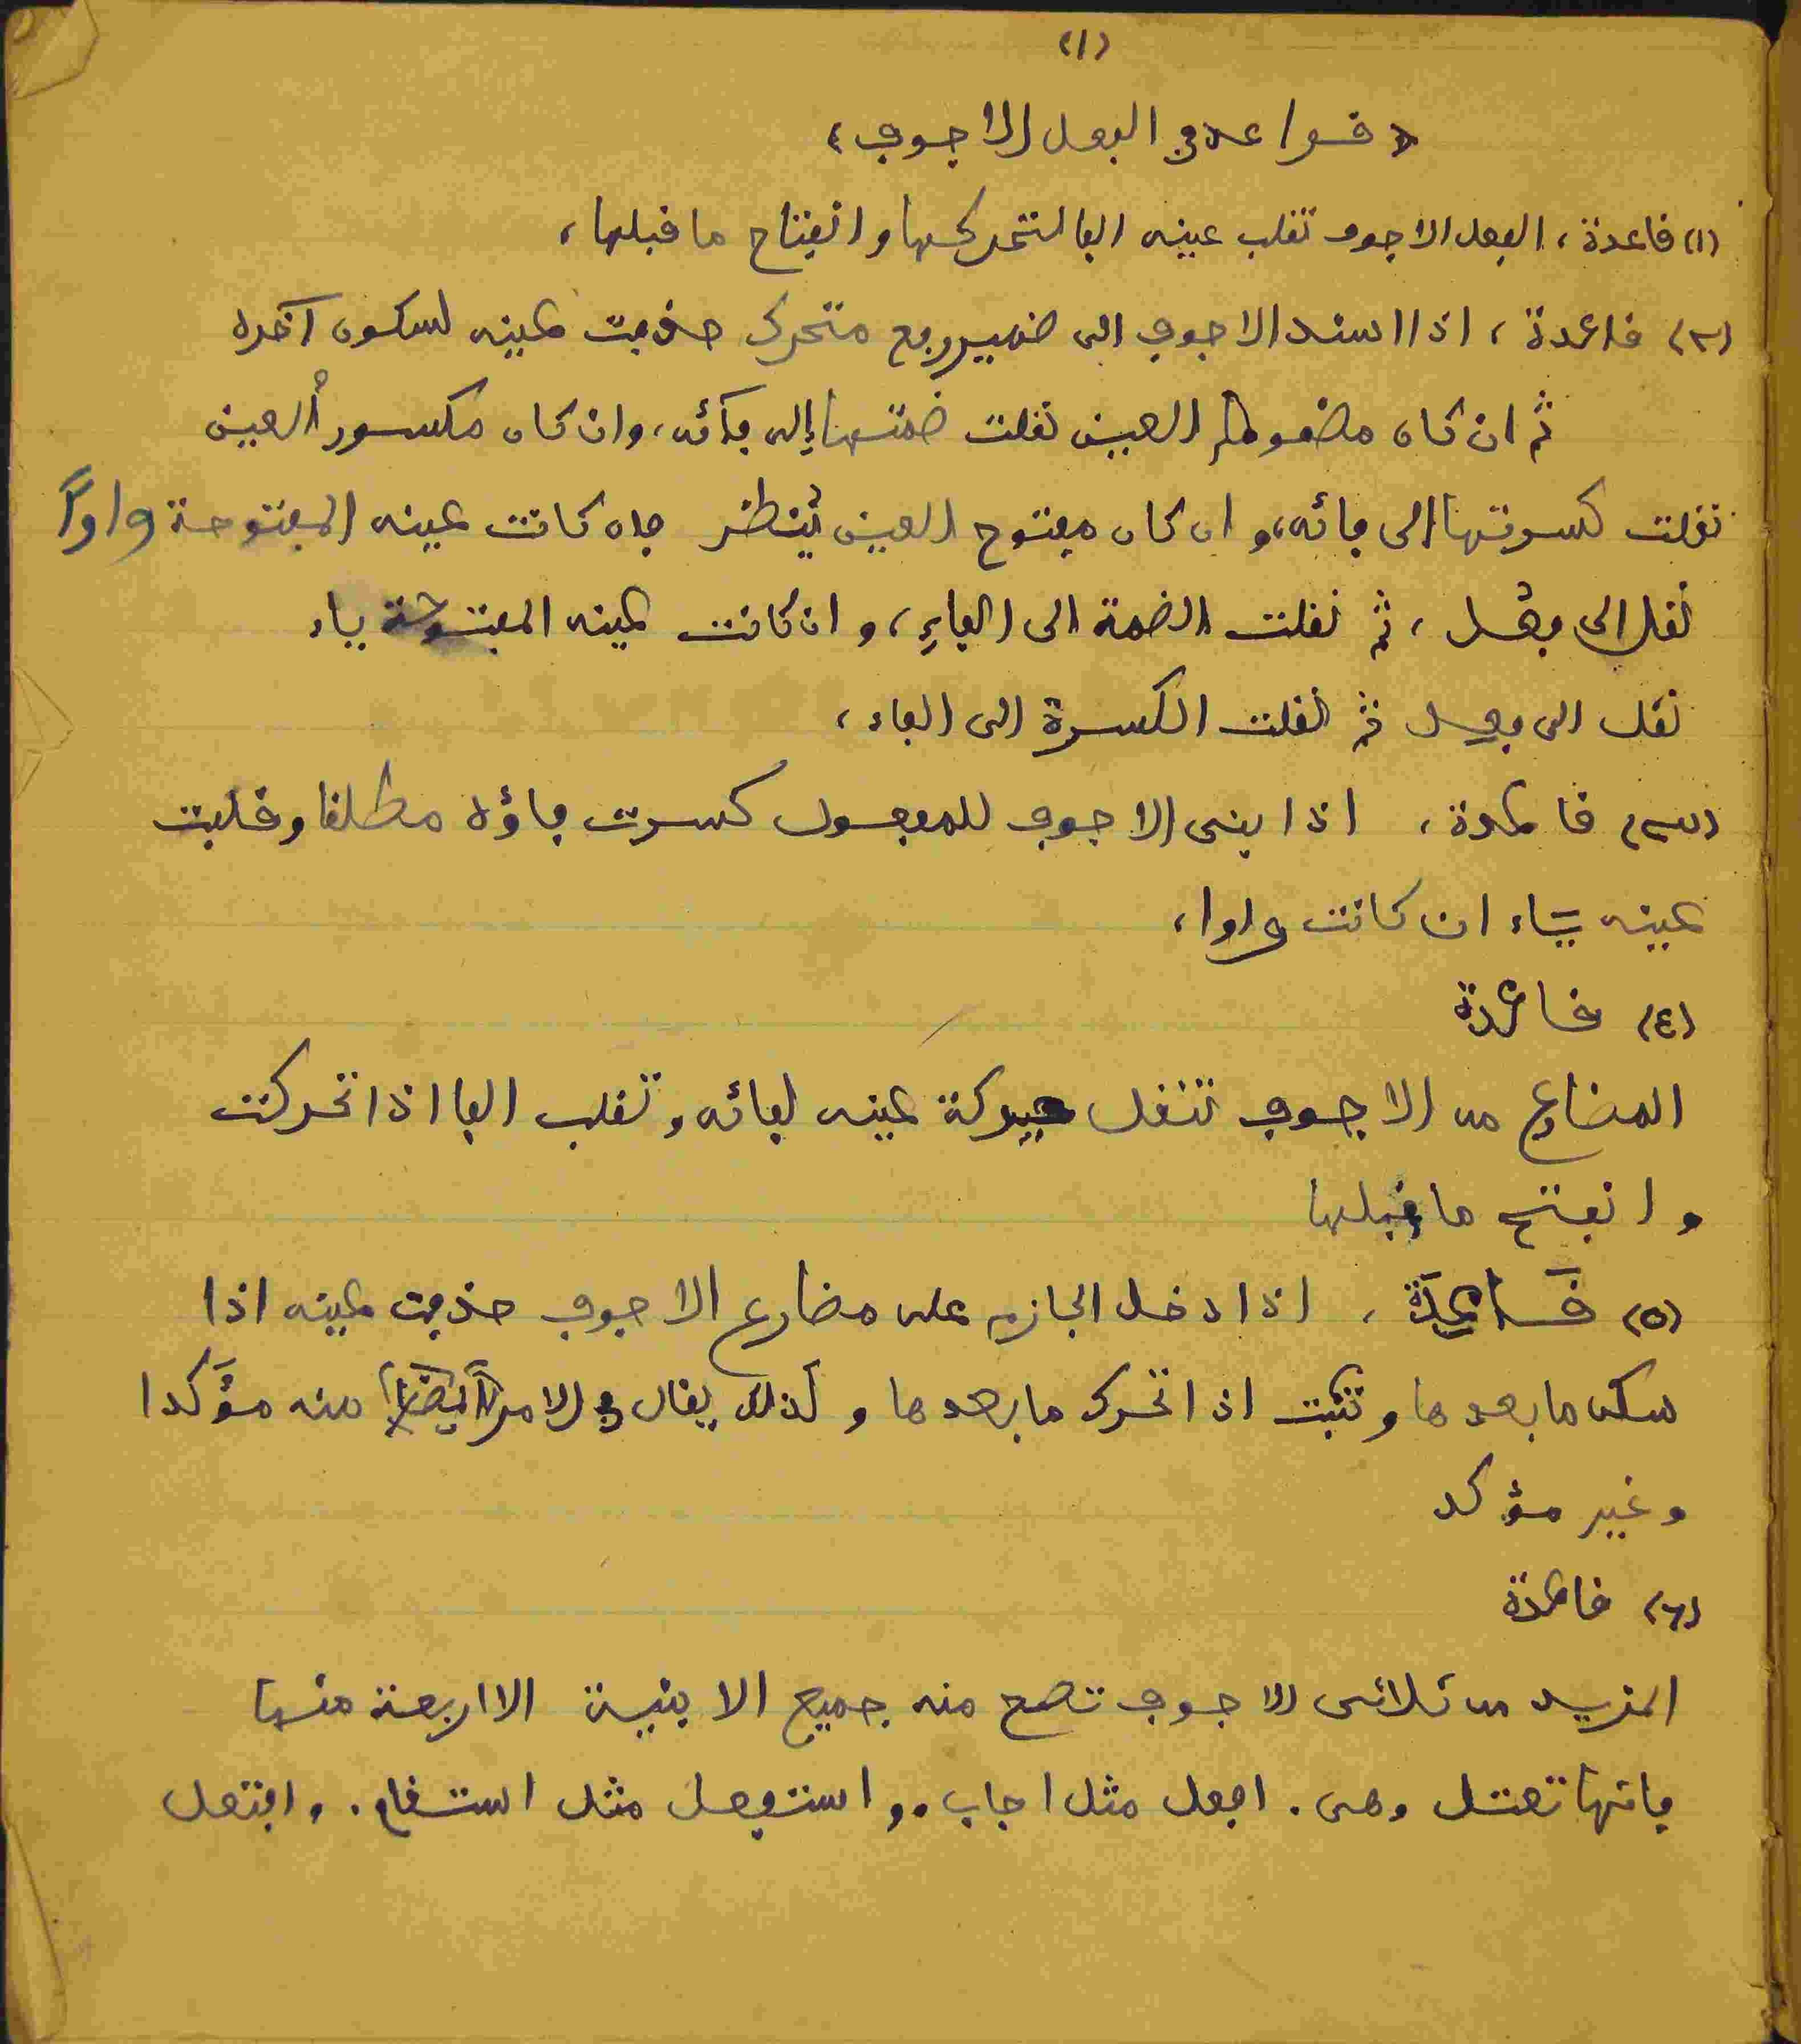 (١)
«قواعد في الفعل الاجوف»
(١) قاعدة، الفعل الاجوف تقلب عينه الفا لتحركها وانفتاح ما قبلها،
(٢) قاعدة، اذا اسند الاجوف الى ضمير رفع متحرك حذفت عينه لسكون آخره
ثم ان كان مضموم العين نقلت ضمتها إلى فآئه، وان كان مكسور ألعين
نقلت كسرتها الى فائه، وان كان مفتوح العين يُنظر فان كانت عينه المفتوحة واواً
نُقل الى فعُل، ثم نقلت الضمة الى الفاءِ، وان كانت عينه المفتوحة ياء
نقل الى فعِل ثم نقلت الكسرة الى الفاء،
(٣) قاعدة، اذا بنى الاجوف للمفعول كسرت فاؤه مطلقا وقلبت
عينه يـاء ان كانت واوا،
(٤) قاعدة
المضارع من الاجوف تنقل حركة عينه لفائه وتقلب الفا اذا تحركت
وانفتح ما قبلها
(٥) قَاعِدَة، اذا دخل الجازم على مضارع الاجوف حذفت عينه اذا
سكن ما بعدها وتثبت اذا تحرك ما بعدها وكذلك يقال في الامر أيضا منه مؤَكدا
وغير مؤكد
(٦) قاعدة
المزيد من ثلاثى الاجوف تصح منه جميع الابنية الا اربعة منها
فانها تعتل وهى. افعل مثل اجاب. واستفعل مثل استقام. وافتعل